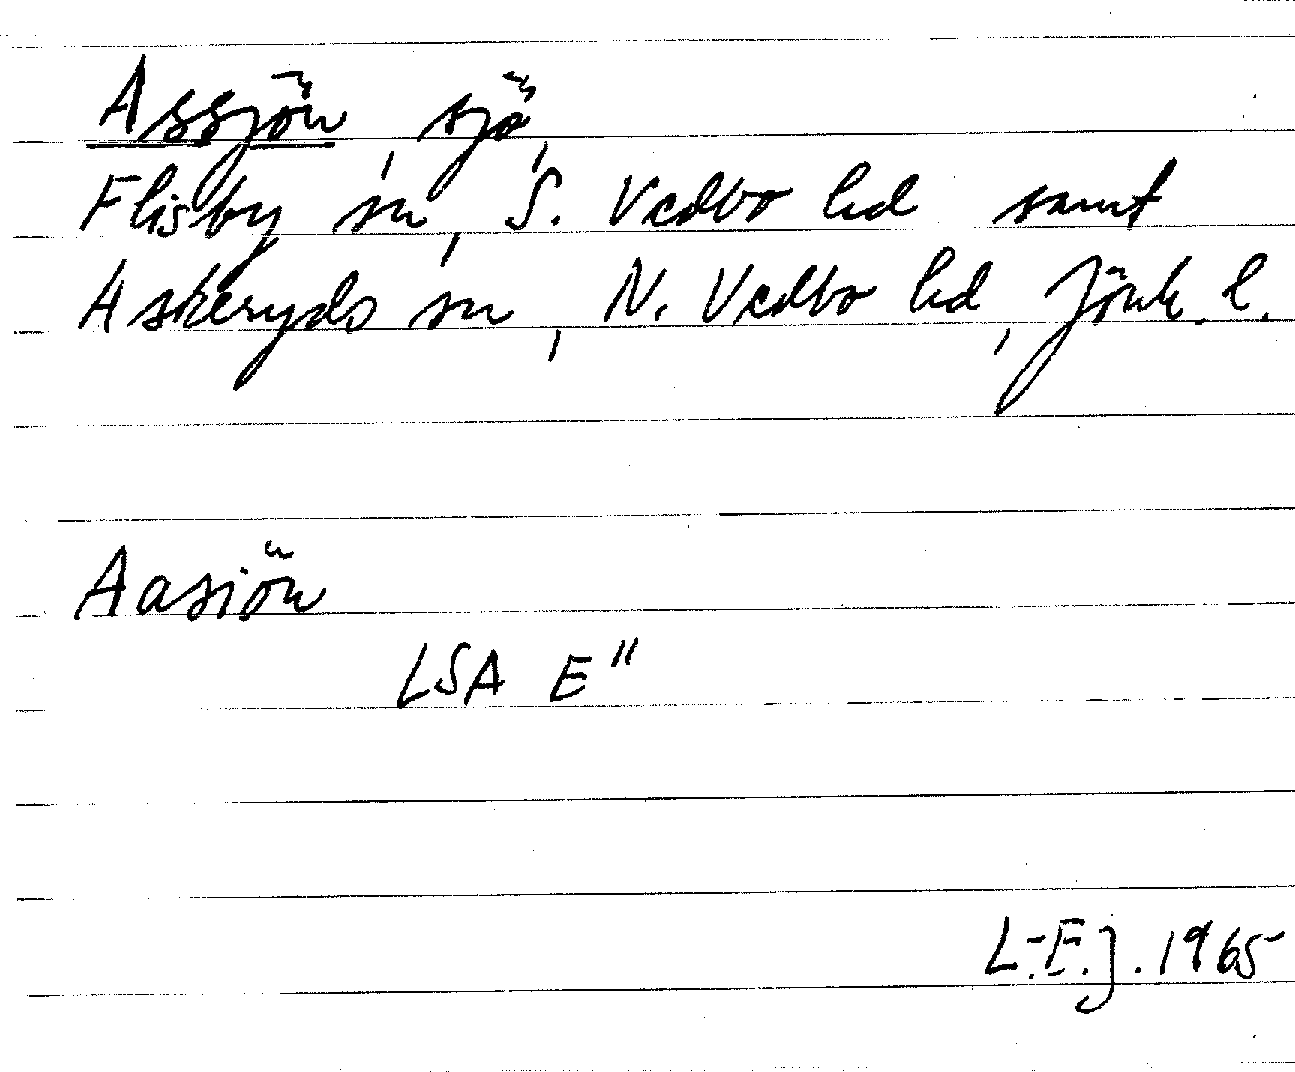 Assjön, sjö,
Flisby sn, S. Vedbo hd samt
Askeryds sn, N. Vedbo hd, Jönk. l.
Aasiön
LSA E"
L.-E.J. 1965